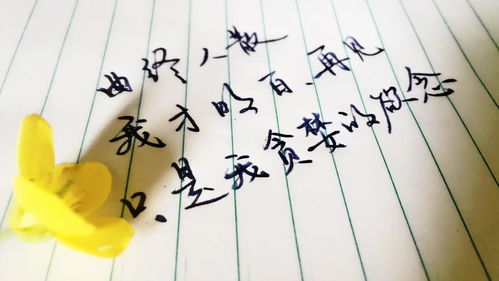 曲终人散
我才明白.再见
只.是我贪婪的欲念